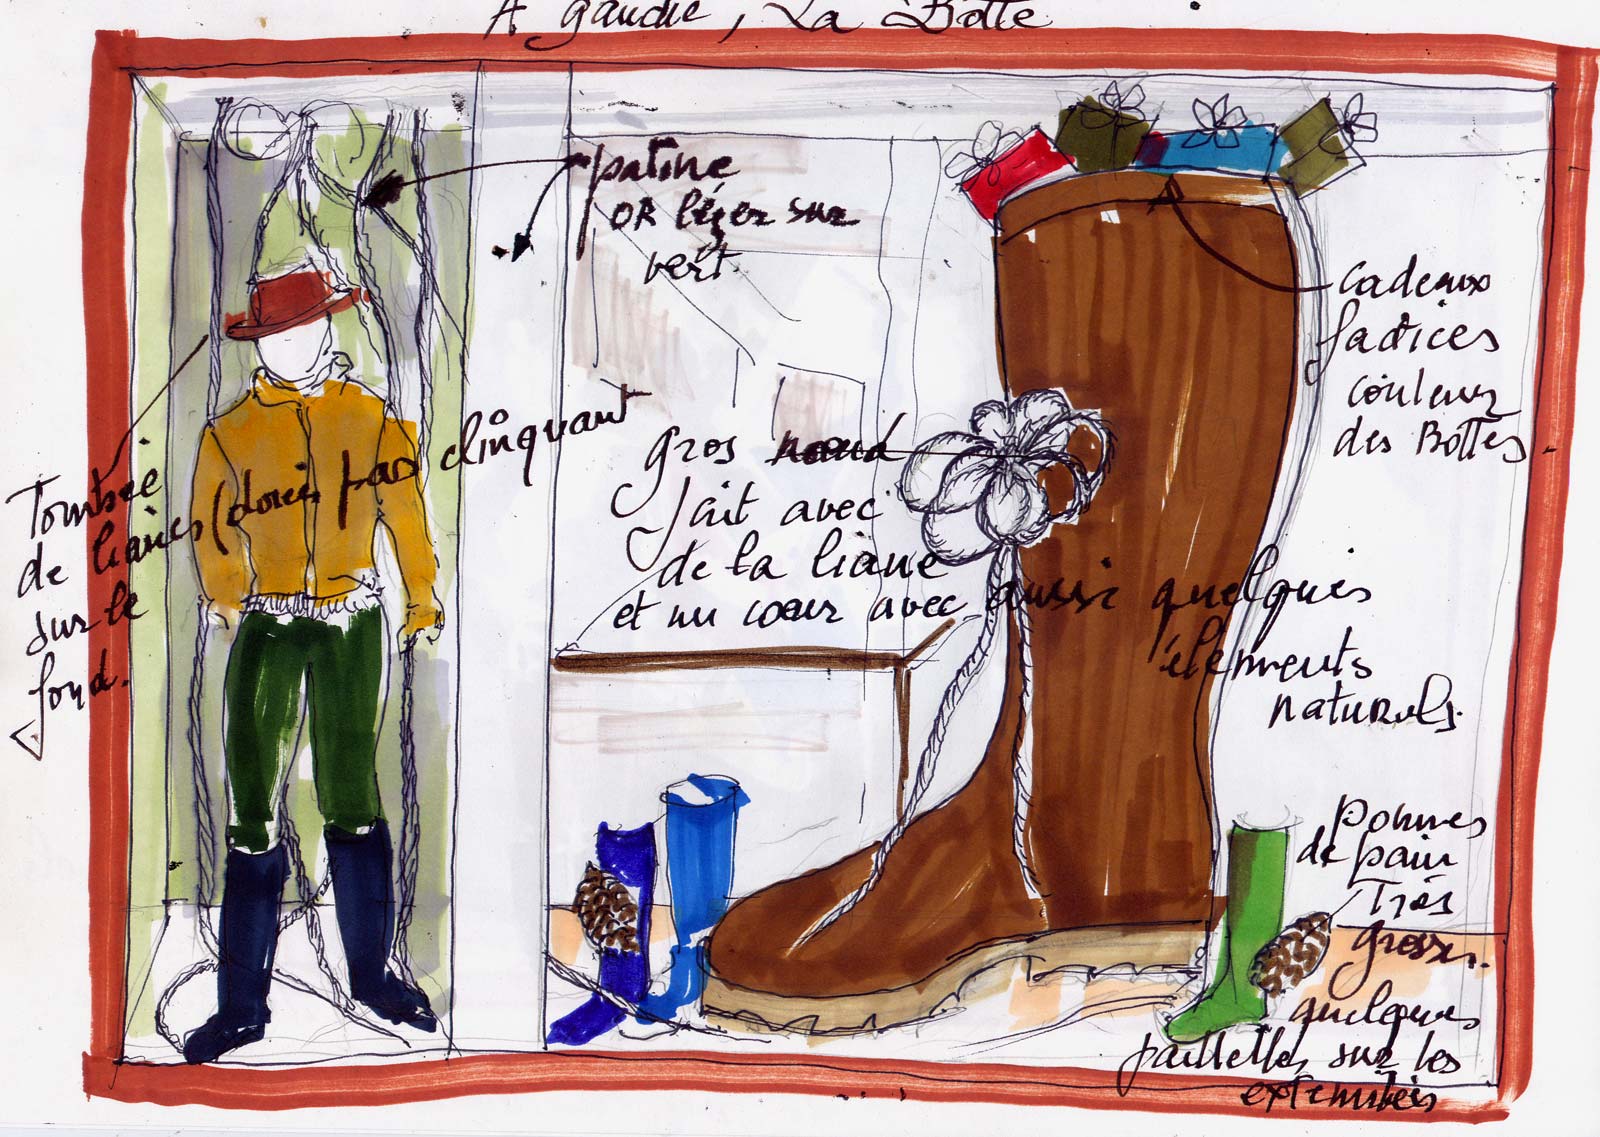 A gauche, La Botte
patine
OR léger sur
vert.
cadeaux
factices
couleur
des Bottes.
Tombée
de lianes (dorées pas clinquant
sur le
fond.
gros nœud
fait avec
de la liane
et un cœur avec aussi quelques
éléments
naturels.
Pommes
de pain
Très
grosses.
quelques
paillettes sur les
extremités